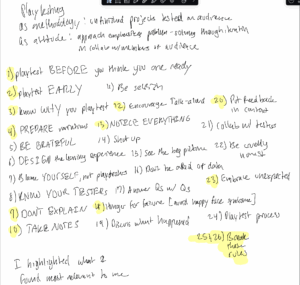 Playtesting
as methodology: unfinished projects tested on audience
as attitude: approach complicated problem-solving through iteration
in collab w/ members of audience
1) playtest BEFORE you think you are ready
2) playtest EARLY
3) know WHY you playtest
4) PREPARE variations
5) BE GRATEFUL
6) DESIGN the learning experience
7) Blame YOURSELF, not playtesters
8) KNOW YOUR TESTERS
9) DON'T EXPLAIN
10) TAKE NOTES
11) Be selfish
12) Encourage Talk-aloud
13) NOTICE EVERYTHING
14) Shut up
15) See the big picture
16) Don't be afraid of data
17) Answer Qs w/ Qs
18) Hunger for failure [avoid happy face syndrome]
19) Discuss what happened
20) Put feedback in context
21) Collab w/ testers
22) Be cruelly honest
23) Embrace unexpected
24) Playtest process
25) (26) Break these rules
I highlighted what I
found most relevant to me